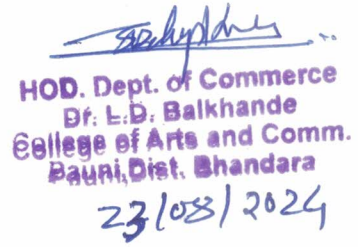 HOD. Dept. of Commerce
Dr. L.D. Balkhande
College of Arts and Comm.
Pauni,Dist. Bhandara
23/08/2024